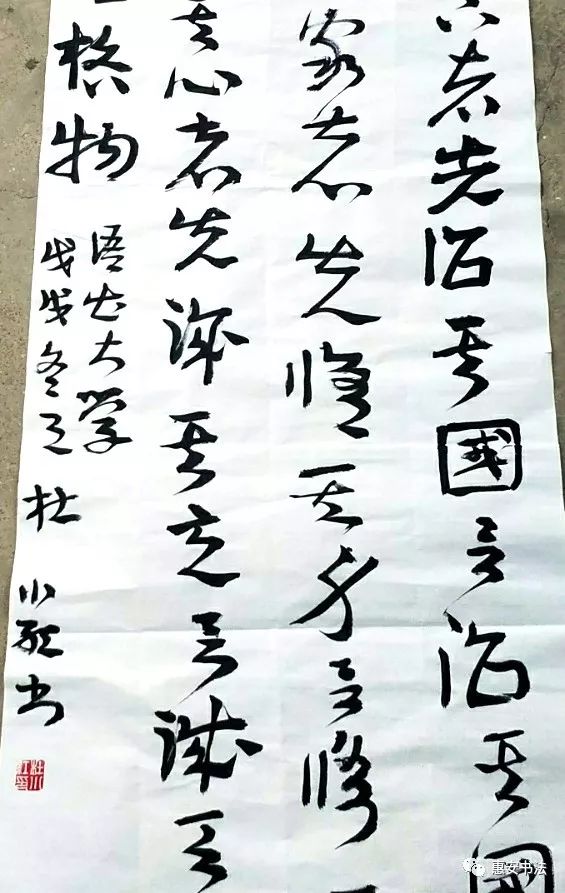 者先治其國欲治其國
家者先修其身欲修
其心者先誠其意欲誠其
格物
语出大学
戊戌冬 杜小红书
惠安书法